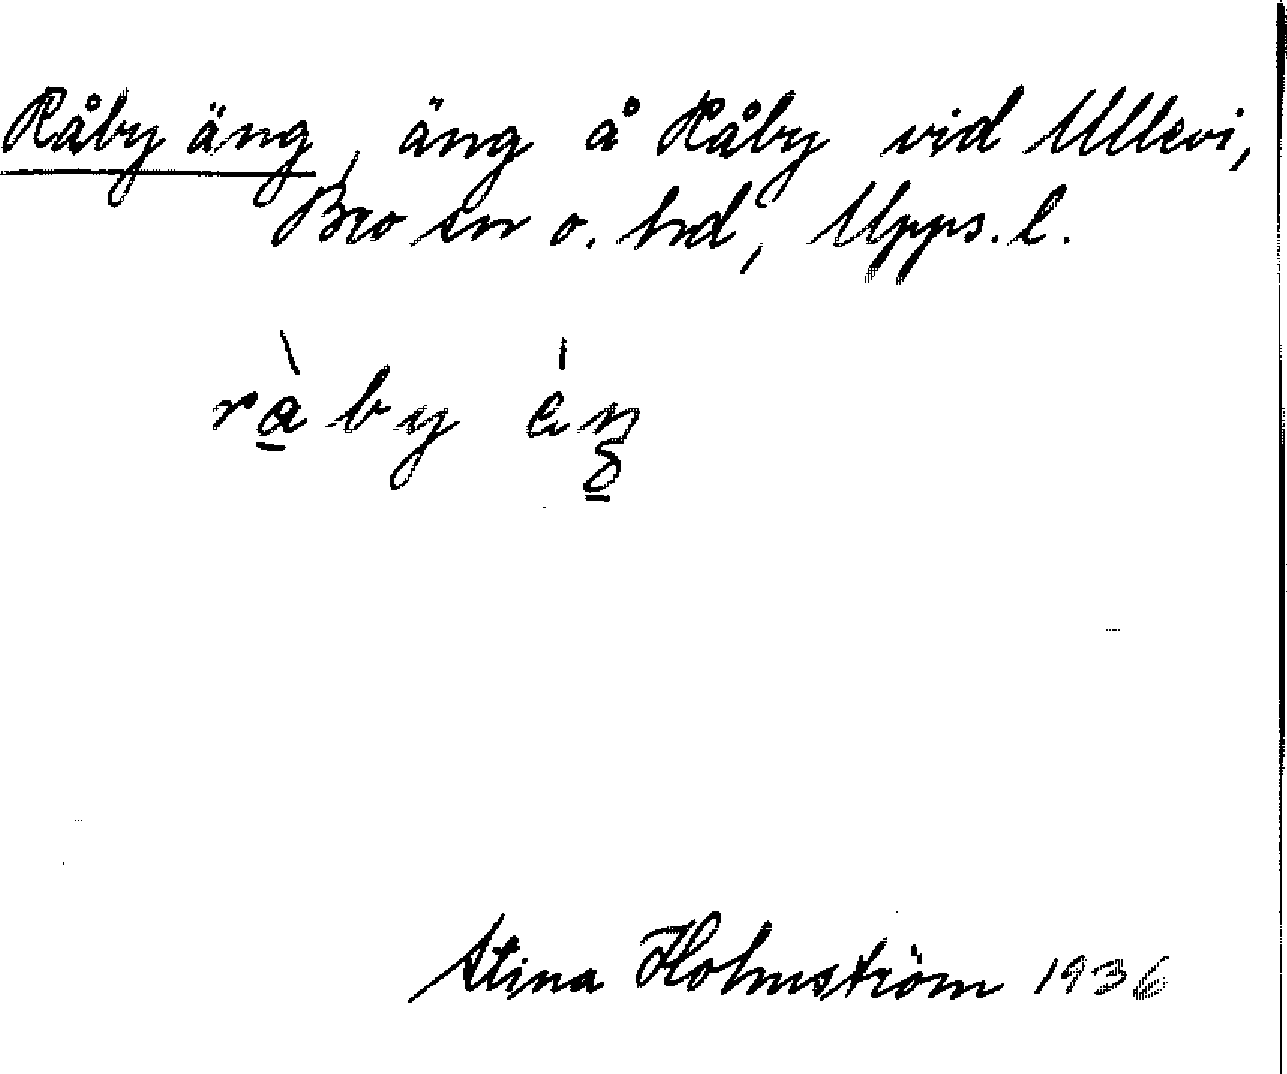 Råby äng, äng å Råby vid Ullevi,
Bro sn o. hd, Upps. l.
ràby éŋ
Stina Holmström 1936